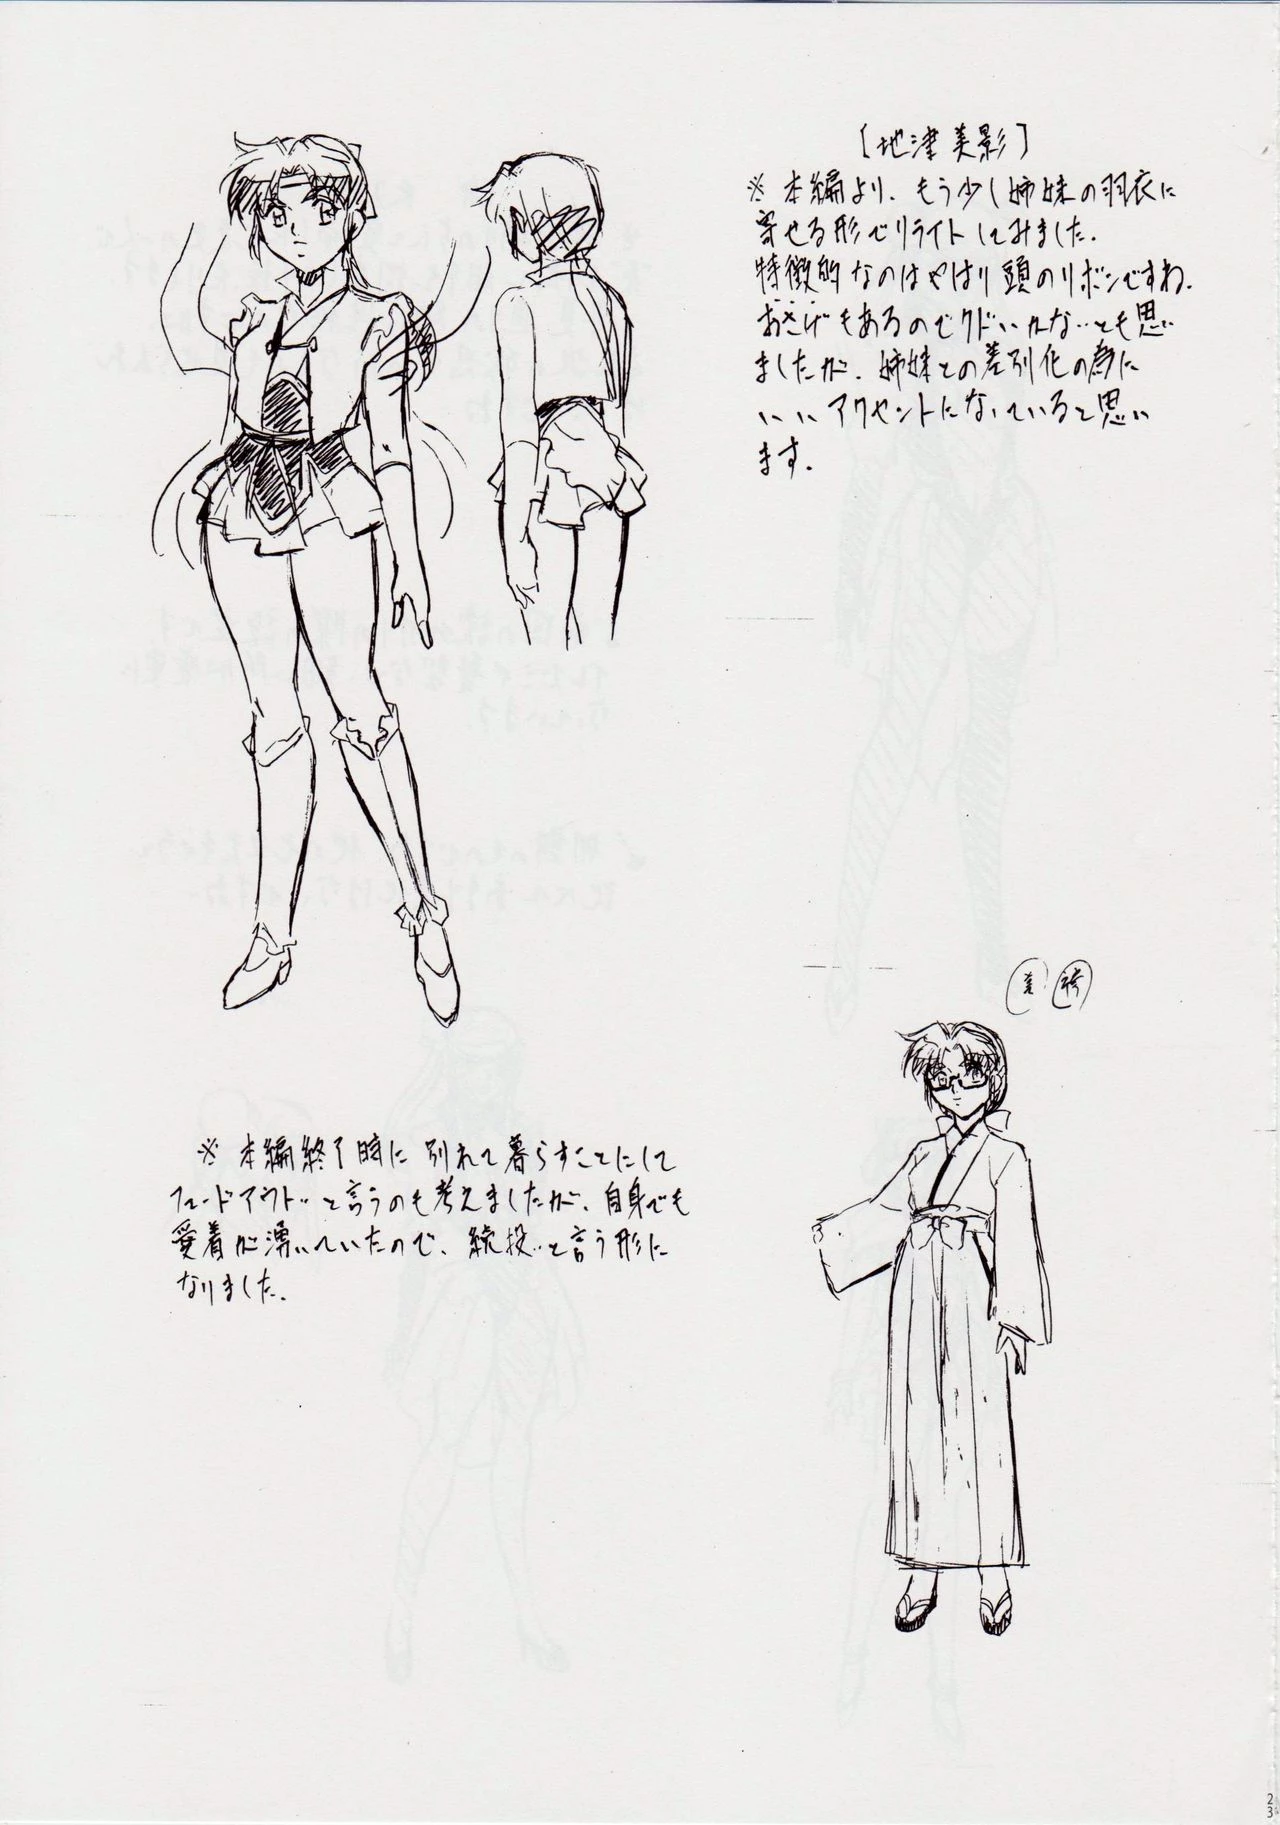 [地津美影]
※本編より、もう少し姉妹の羽衣に
寄せる形でリライトしてみました。
特徴的なのはやはり頭のリボンですね。
おさげもあるのでクドいかな‥とも思い
ましたが、姉妹との差別化の為に
いいアクセントになっていると思い
ます。
袴
※本編終了時に別れて暮らすことにして
フェードアウト‥と言うのも考えましたが、自身でも
愛着が湧いていたので、続投‥と言う形に
なりました。
23